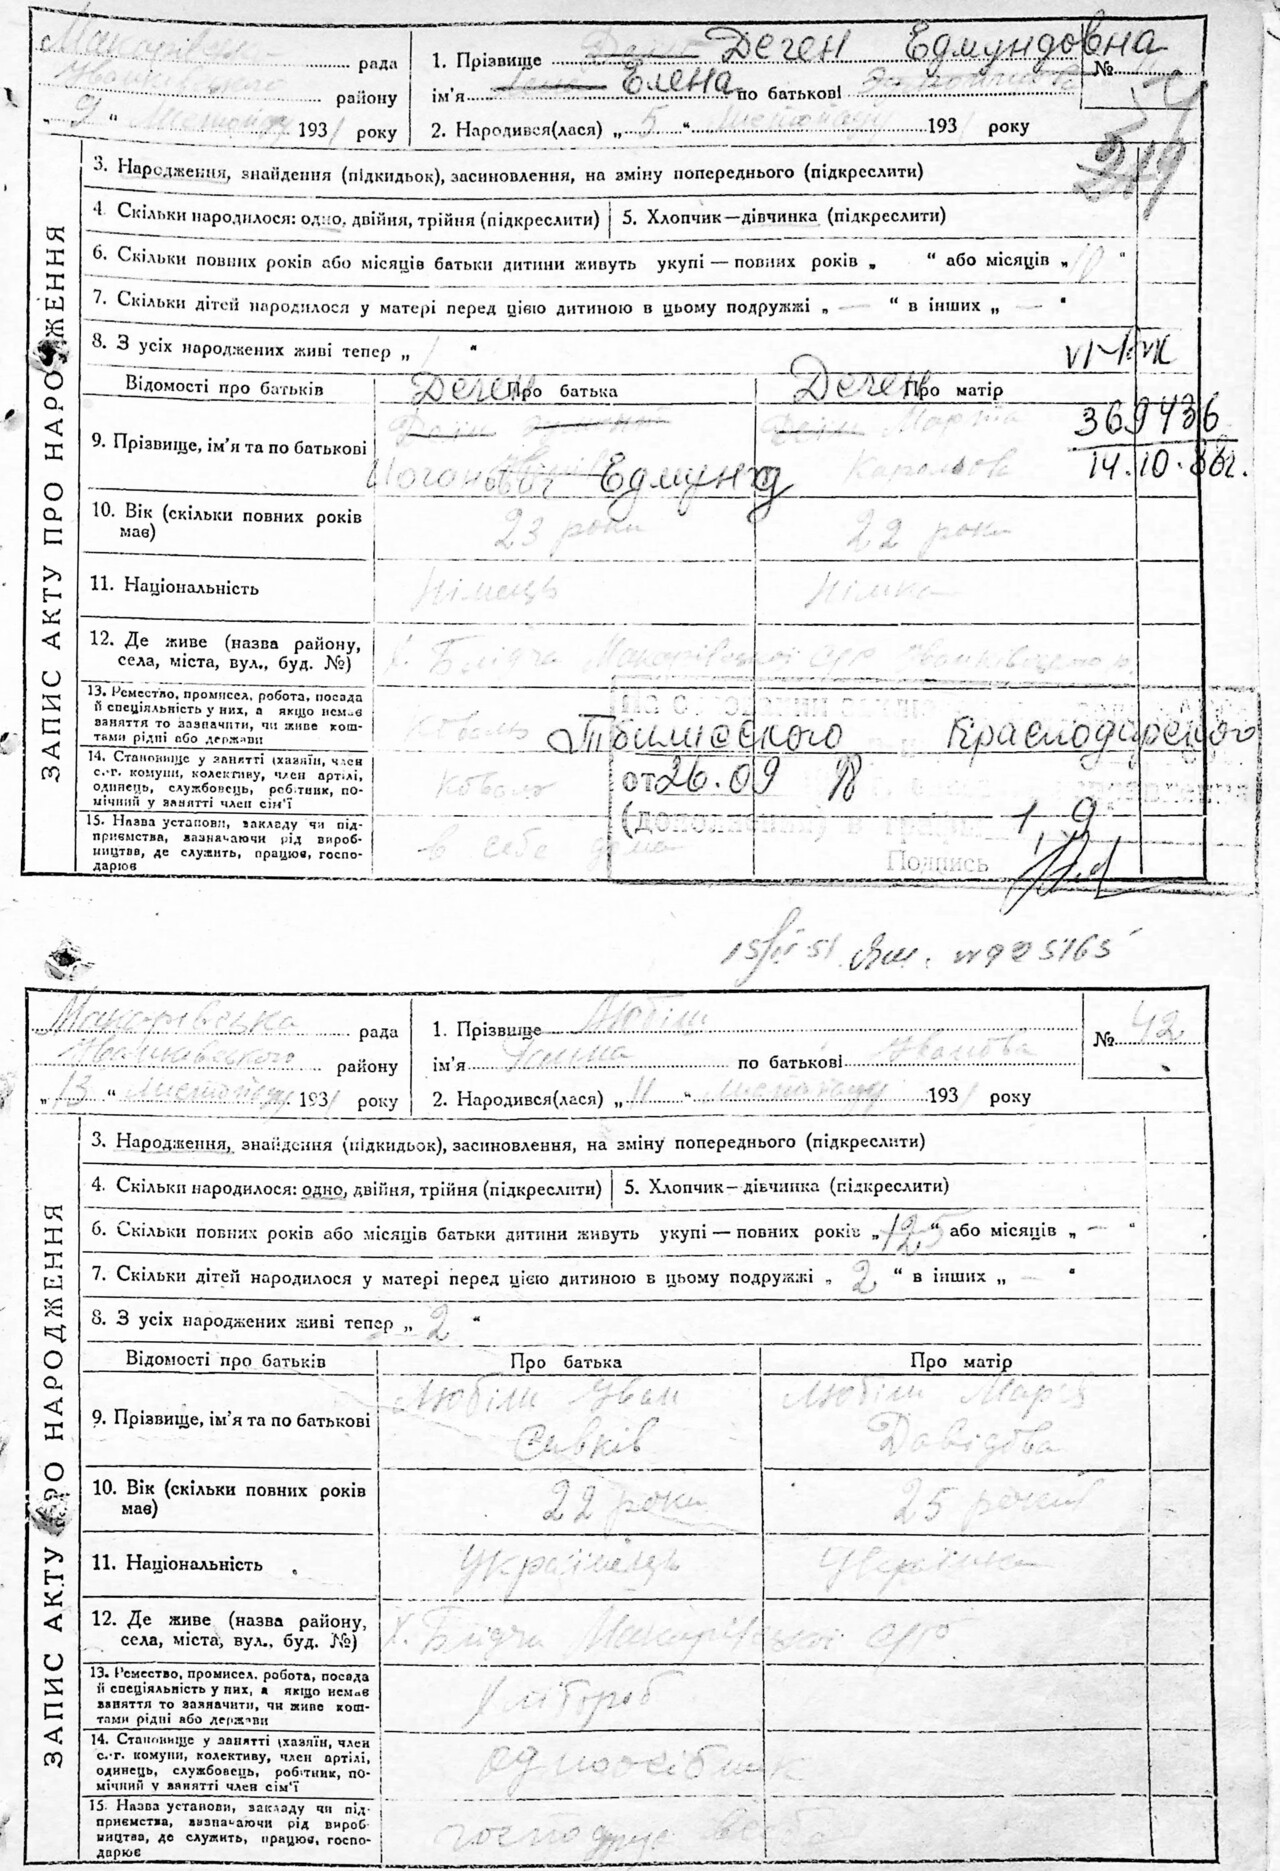 Макарівська рада
Іванківського району
„ 9 “ Листопаду 1931 року
1. Прізвище Деген Едмундовна
ім'я Елена по батькові
2. Народився(лася) „ 5 “ Листопаду 1931 року
№
219
ЗАПИС АКТУ ПРО НАРОДЖЕННЯ
3. Народження, знайдення (підкидьок), засиновлення, на зміну попереднього (підкреслити)
4. Скільки народилося: одно, двійня, трійня (підкреслити) 5. Хлопчик—дівчинка (підкреслити)
6. Скільки повних років або місяців батьки дитини живуть укупі — повних років „ “ або місяців „ 10 “
7. Скільки дітей народилося у матері перед цією дитиною в цьому подружжі „ — “ в інших „ — “
8. З усіх народжених живі тепер „ 1 “
Відомості про батьків
Про батька
Про матір
9. Прізвище, ім'я та по батькові
Деген
Иоганович Едмунд
Деген Марта
Карольов
369436
14.10.88г.
10. Вік (скільки повних років має)
23 роки
22 роки
11. Національність
Німець
Німка
12. Де живе (назва району, села, міста, вул., буд. №)
х. Блідча Макарівської с/р Іванківського р.
13. Ремество, промисел, робота, посада й спеціяльність у них, а якщо немає заняття то зазначити, чи живе коштами рідні або держави
Коваль
Тбилисского Краснодарского
14. Становище у занятті (хазяїн, член с.-г. комуни, колективу, член артілі, одинець, службовець, робітник, помічний у занятті член сім'ї
Коваль
от 26.09
15. Назва установи, закладу чи підприємства, зазначаючи рід виробництва, де служить, працює, господарює
в себе дома
1, 9
Подпись
№ 925165
Макарівська рада
Іванківського району
„ 13 “ Листопаду 1931 року
1. Прізвище Любіли
ім'я по батькові Іванова
2. Народився(лася) „ 11 “ листопаду 1931 року
№ 42
ЗАПИС АКТУ ПРО НАРОДЖЕННЯ
3. Народження, знайдення (підкидьок), засиновлення, на зміну попереднього (підкреслити)
4. Скільки народилося: одно, двійня, трійня (підкреслити) 5. Хлопчик—дівчинка (підкреслити)
6. Скільки повних років або місяців батьки дитини живуть укупі — повних років „ “ або місяців „ — “
7. Скільки дітей народилося у матері перед цією дитиною в цьому подружжі „ 2 “ в інших „ — “
8. З усіх народжених живі тепер „ 2 “
Відомості про батьків
Про батька
Про матір
9. Прізвище, ім'я та по батькові
Любіли Іван
Савків
Любіли Марія
Давідова
10. Вік (скільки повних років має)
22 роки
25 років
11. Національність
Українець
Українка
12. Де живе (назва району, села, міста, вул., буд. №)
Х. Блідча Макарівської с/р
13. Ремество, промисел, робота, посада й спеціяльність у них, а якщо немає заняття то зазначити, чи живе коштами рідні або держави
Хлібороб
14. Становище у занятті (хазяїн, член с.-г. комуни, колективу, член артілі, одинець, службовець, робітник, помічний у занятті член сім'ї
одноосібник
15. Назва установи, закладу чи підприємства, зазначаючи рід виробництва, де служить, працює, господарює
господарює в себе